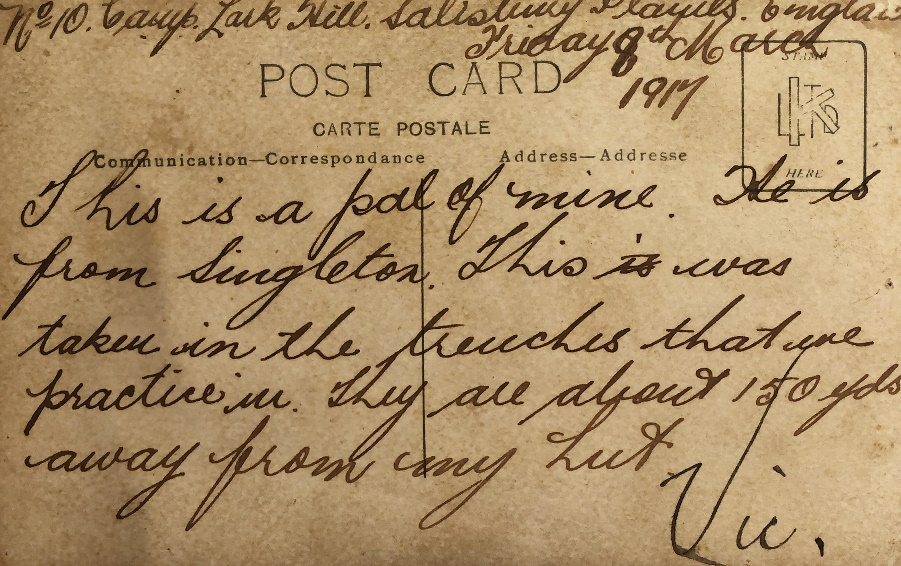 Nº 10. Camp. Lark Hill. Salisbury Plains. England
Friday 9th March
1917
POST CARD
CARTE POSTALE
Communication—Correspondance
Address—Addresse
STAMP
HERE
This is a pal of mine. He is
from Singleton. This is was
taken in the trenches that we
practice in. They are about 150 yds
away from my hut
Vic.